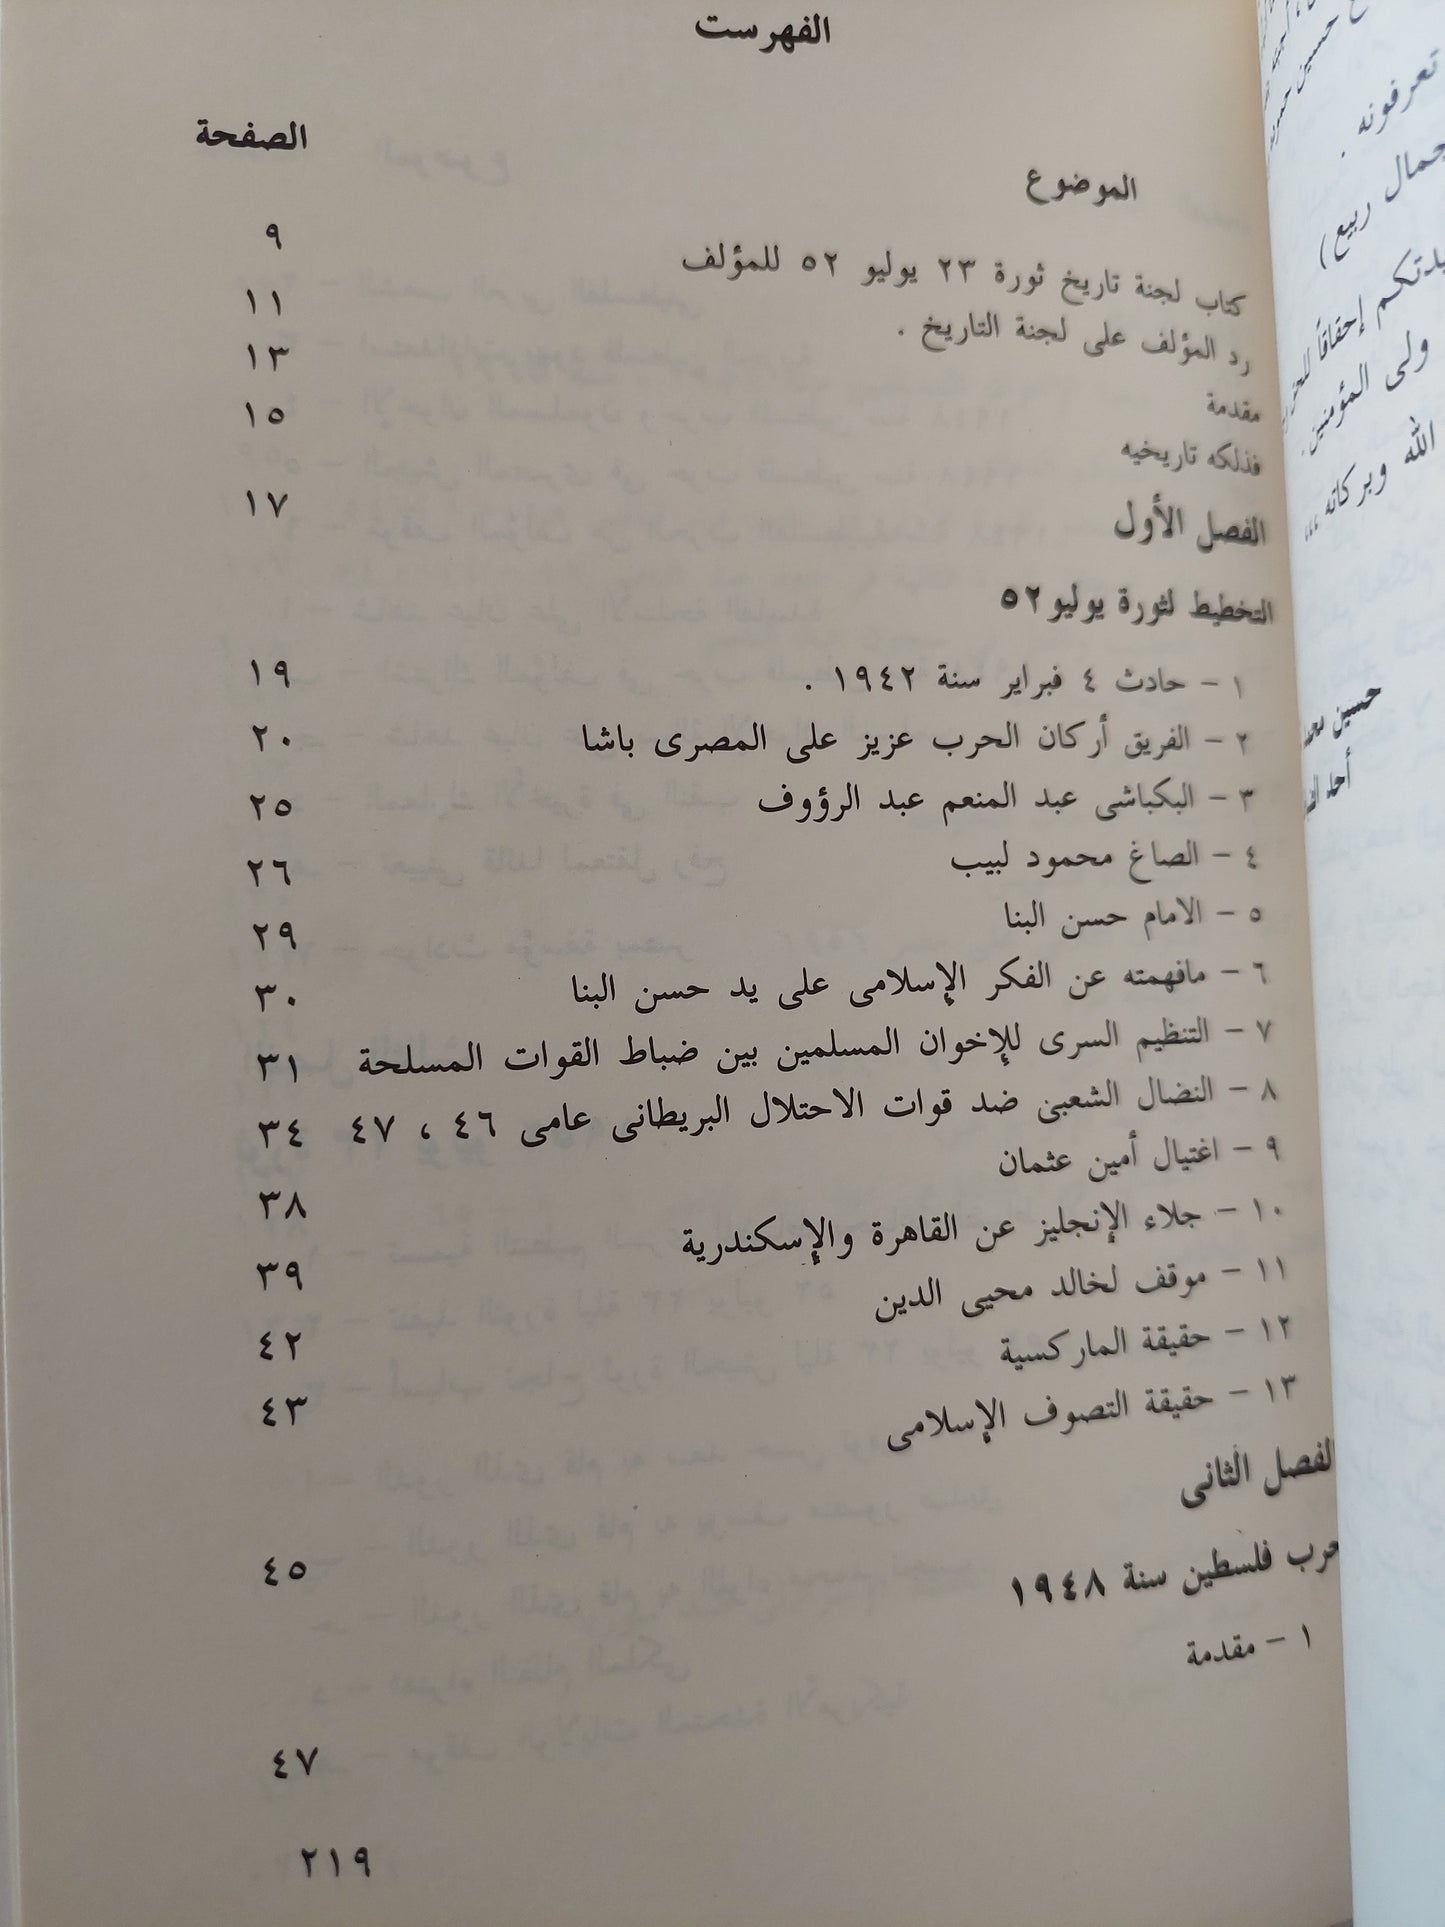 الفهرست
الموضوع الصفحة
كتاب لجنة تاريخ ثورة ٢٣ يوليو ٥٢ للمؤلف ٩
رد المؤلف على لجنة التاريخ . ١١
مقدمة ١٣
فذلكه تاريخيه ١٥
الفصل الأول ١٧
التخطيط لثورة يوليو ٥٢
١ - حادث ٤ فبراير سنة ١٩٤٢ . ١٩
٢ - الفريق أركان الحرب عزيز على المصرى باشا ٢٠
٣ - البكباشى عبد المنعم عبد الرؤوف ٢٥
٤ - الصاغ محمود لبيب ٢٦
٥ - الامام حسن البنا ٢٩
٦ - مافهمته عن الفكر الإسلامى على يد حسن البنا ٣٠
٧ - التنظيم السرى للإخوان المسلمين بين ضباط القوات المسلحة ٣١
٨ - النضال الشعبى ضد قوات الاحتلال البريطانى عامى ٤٦ ، ٤٧ ٣٤
٩ - اغتيال أمين عثمان ٣٨
١٠ - جلاء الإنجليز عن القاهرة والإسكندرية ٣٩
١١ - موقف لخالد محيى الدين ٤٢
١٢ - حقيقة الماركسية ٤٣
١٣ - حقيقة التصوف الإسلامى
الفصل الثانى ٤٥
حرب فلسطين سنة ١٩٤٨
١ - مقدمة ٤٧
٢١٩
حسين
تعرفونه .
جمال ربيع)
إحقاقاً للحق
ولى المؤمنين .
الله وبركاته ،،،
حسين